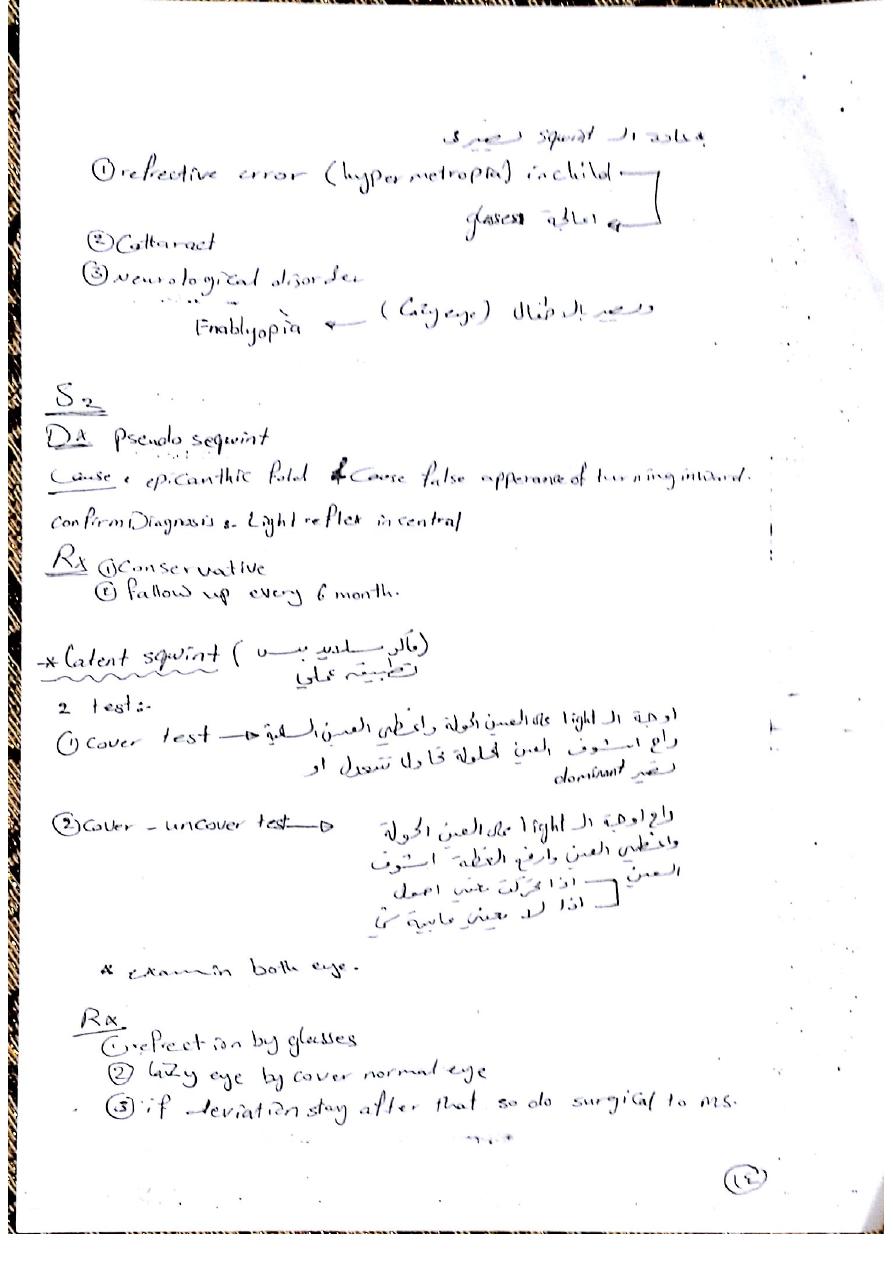 * عادة الـ squint تصير
① refrective error (hypermetropia) in child
glasses
② Cattaract
③ Neurological disorder
(lazy eye)
Enablyopia ←
S2
DX pseudo seqwint
Cause : epicanthic fold & Cause false apperance of turning inward.
Confirm Diagnosis :- Light reflex in central
Rx ① Conservative
② fallow up every 6 month.
* Latent sqwint ( سلايد بس )
تطبيقه عملي
2 test:-
① Cover test → اوجة الـ light على العين الحولة واغطي العين السليمة
راح اشوف العين الحولة تحاول تتعدل او
تصير dominant
② Cover - uncover test → راح اوجة الـ light على العين الحولة
واغطي العين وارفع الغطة اشوف
العين اذا تحركت يعني احول
اذا لا يعني مابية شي
* examin both eye.
Rx
① refrection by glasses
② lazy eye by cover normal eye
③ if deviation stay after that so do surgical to ms.
١٤